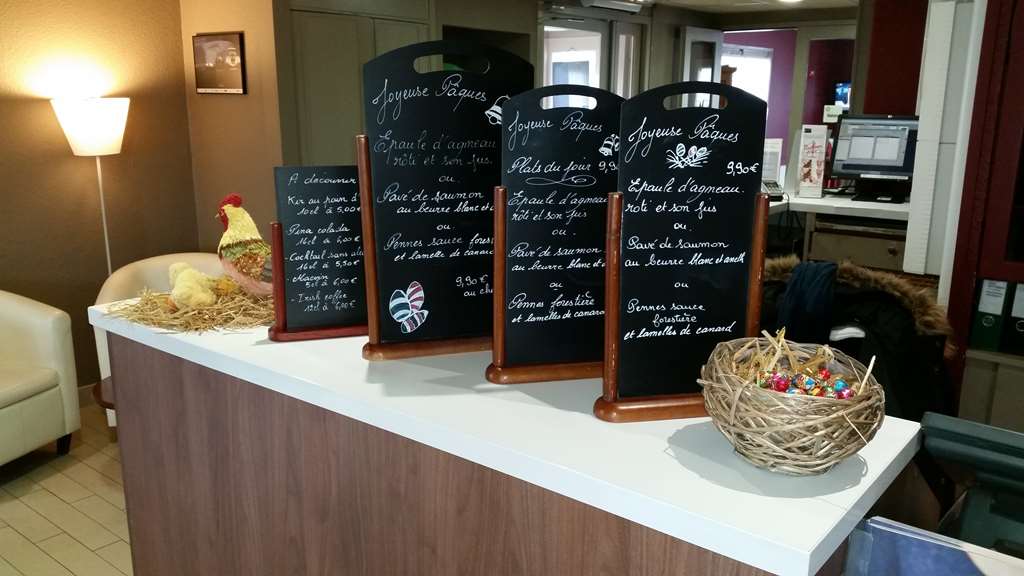 A découvrir
Kir au
10cl à 5,00€
Pina colada
16cl à 6,00€
Cocktail sans
16cl à 5,50€
5cl à 6,00€
- Irish coffee
12cl à
Joyeuse Pâques
Epaule d'agneau
rôti et son jus
ou.
Pavé de saumon
au beurre blanc et
ou
Pennes sauce
et lamelle de canard
9,90€
au
Joyeuse Pâques
Plats du jour 9,9
Epaule d'agneau
rôti et son jus
ou
Pavé de saumon
au beurre blanc et
ou
Pennes forestière
et lamelles de canard
Joyeuse Pâques
9,90€
Epaule d'agneau
rôti et son jus
ou.
Pavé de saumon
au beurre blanc et aneth
ou
Pennes sauce
forestière
et lamelles de canard